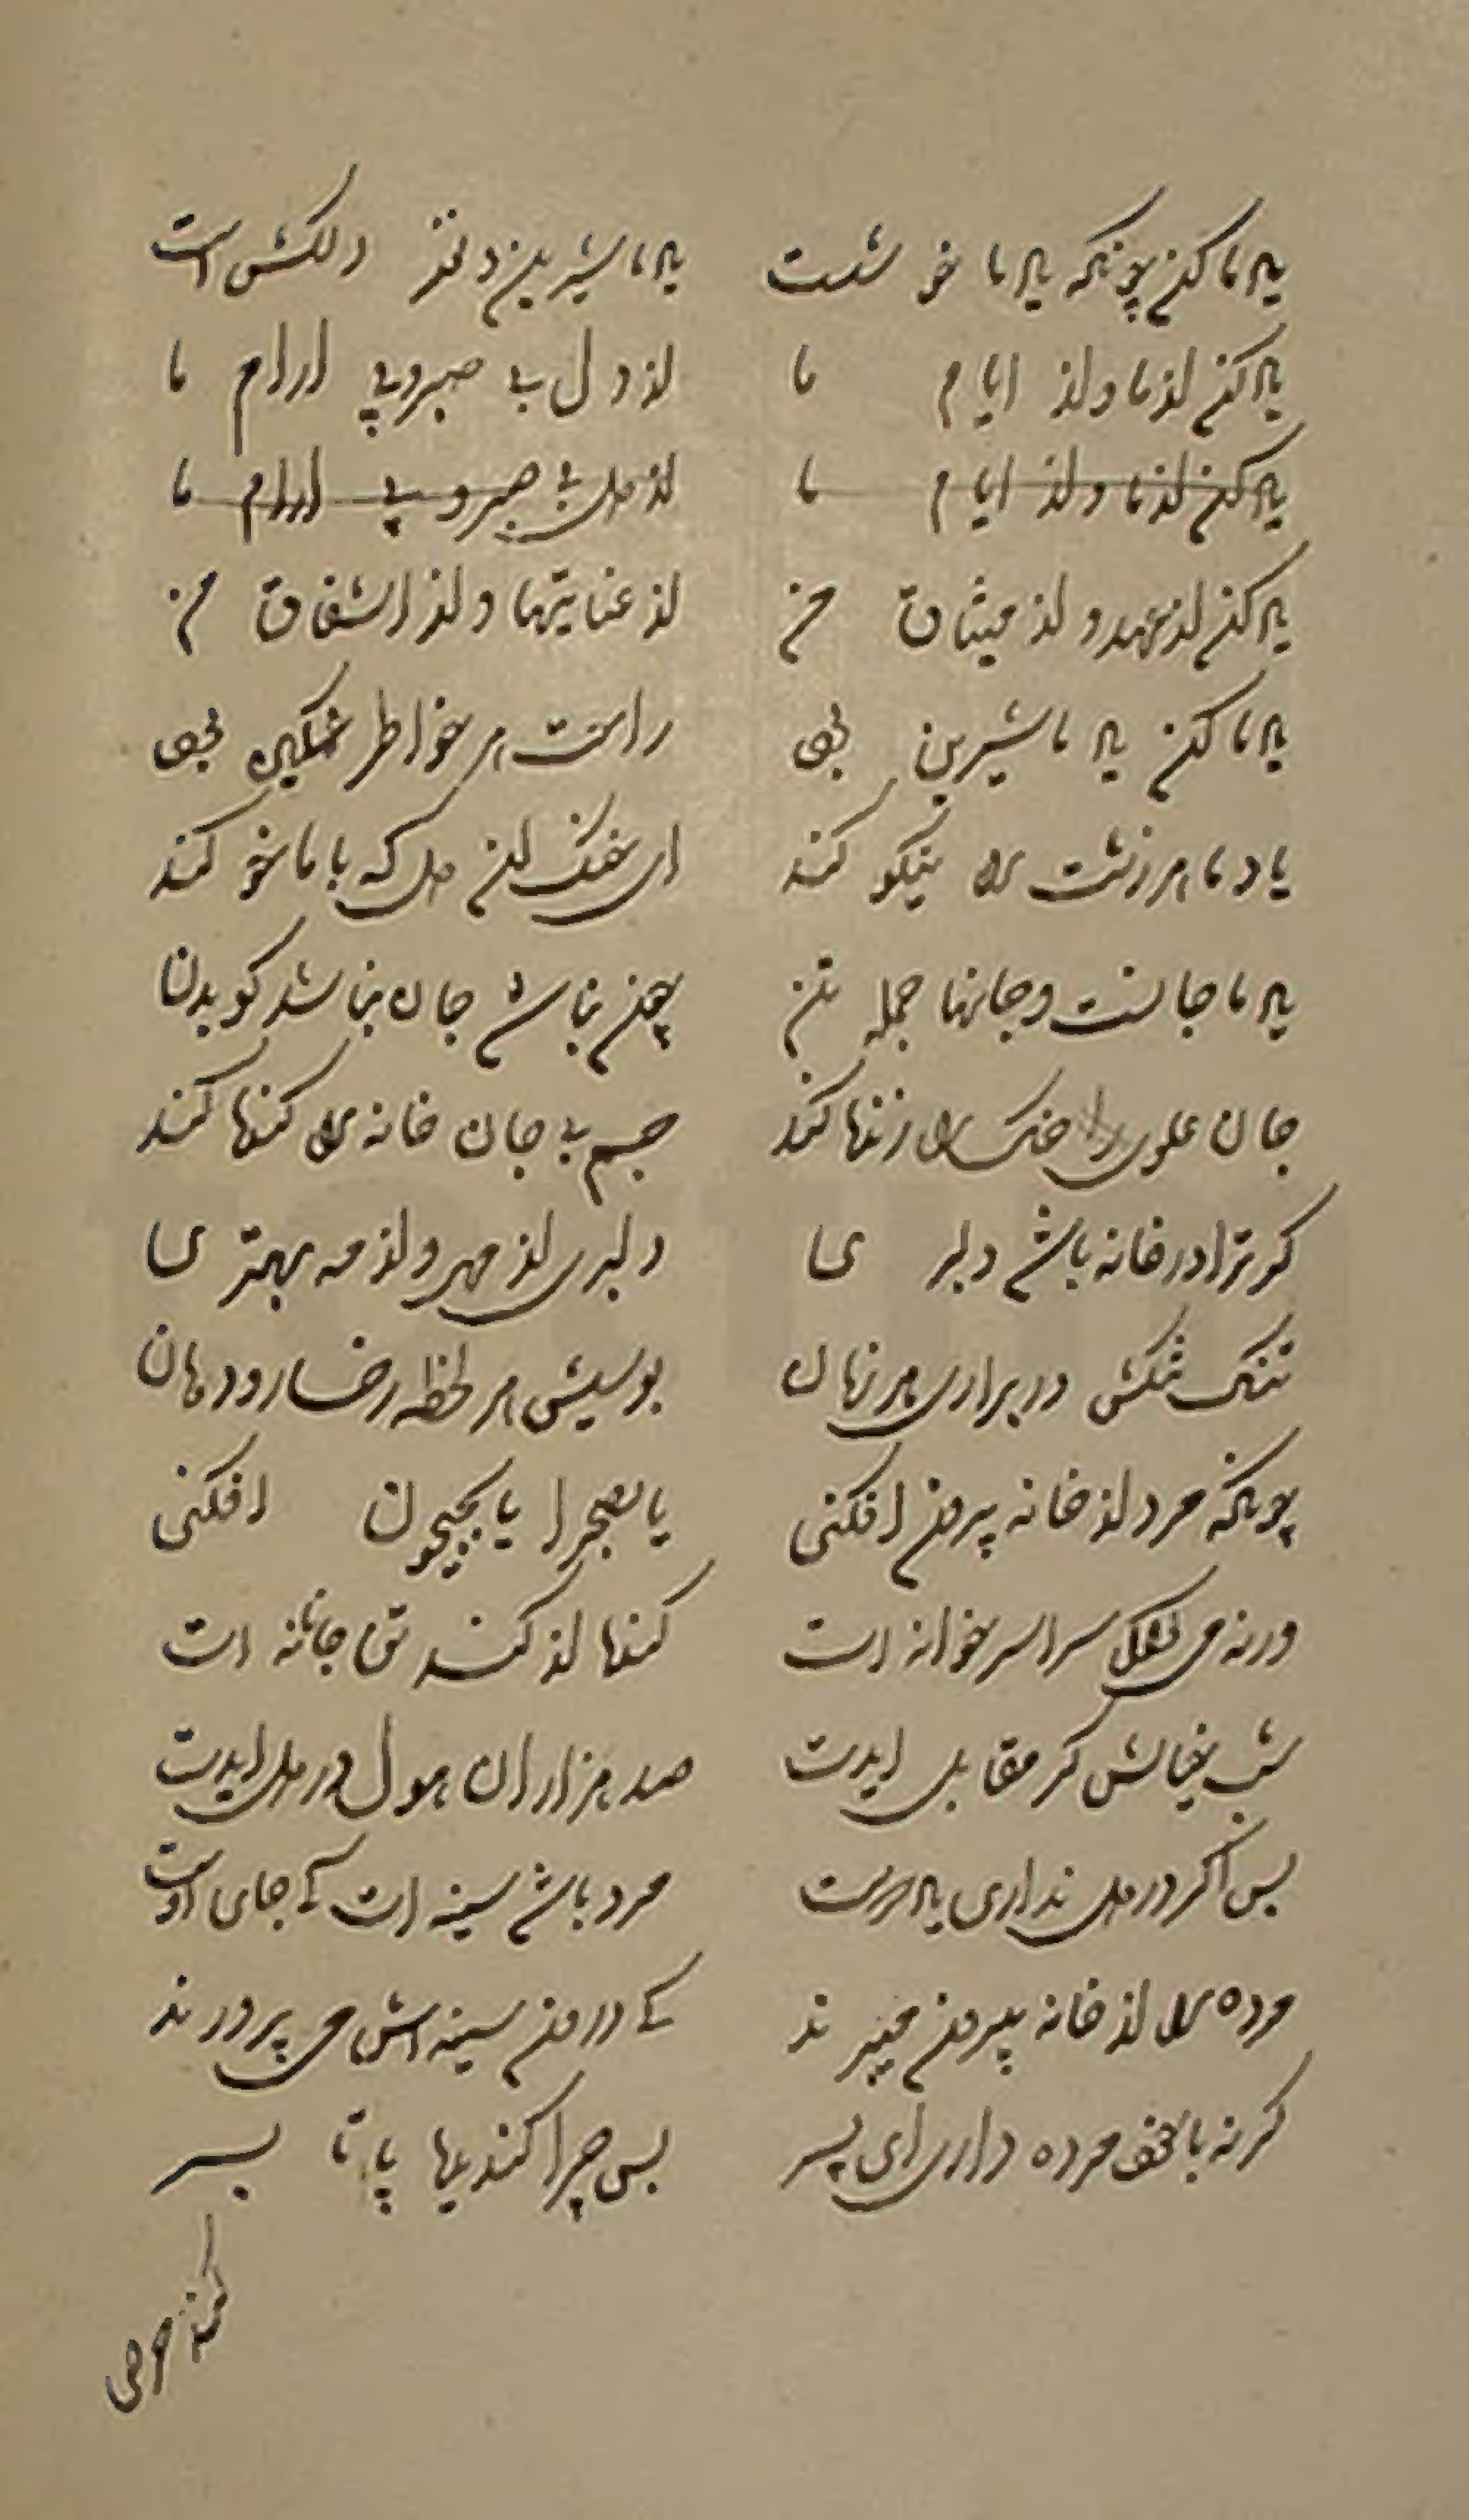 یاد ما کن چونکه یاد ما خوشست یاد ما شیرین و نغز و دلکش است
یاد کن از ما و از ایام ما از دل بی صبر و بی ارام ما
یاد کن از ما و از ایام ما از دل بی صبر و بی ارام ما
یاد کن از عهد و از میثاق من از عنایتها و از اشفاق من
یاد ما کن یاد ما شیرین بود راحت هر خواطر غمگین بود
یاد ما هر زشت را نیکو کند ای خنک ان دل که با ما خو کند
یاد ما جانست و جانها جمله تن چون نباشد جان نباشد کو بدن
جان علوی را خنک را زنها کند جسم بی جان خانه را کنها کند
کر ترا در خانه باشد دلبر یا دلبری از مهر و از مه بهتر یا
تنک تنکش در براری هر زمان بوسیش هر لحظه رخسار و دهان
چونکه مرد از خانه بیرون افکنی یا بصحرا یا بجیحون افکنی
ورنه می سراسر خوانه ات کنها از کند تو جانانه ات
شب خیالش کر مقابل ایدت صد هزاران هول در دل ایدت
بس اکر در دل نداری یاد دوست مرد باشد سینه ات کی جای اوست
مرده را از خانه بیرون میبرند کی درون سینه اش می پرورند
کرنه با خود مرده داری ای پسر بس چرا کندیها پا تا بسر